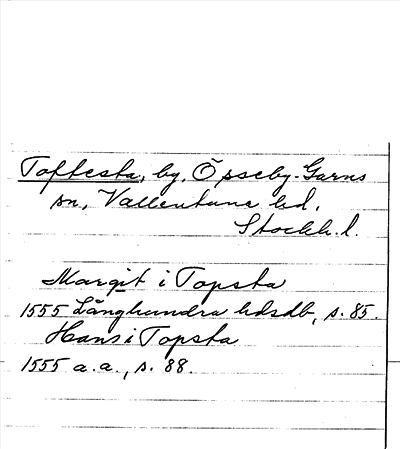 Toftesta, by, Össeby-Garns
sn, Vallentuna hd.
Stockh. l.
Margit i Topsta
1555 Långhundra hdsdb, s. 85.
Hans i Topsta
1555 a.a., s. 88.